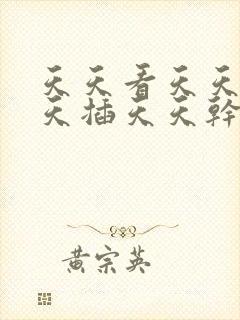 天天看天天
天插天天幹
黄宗英